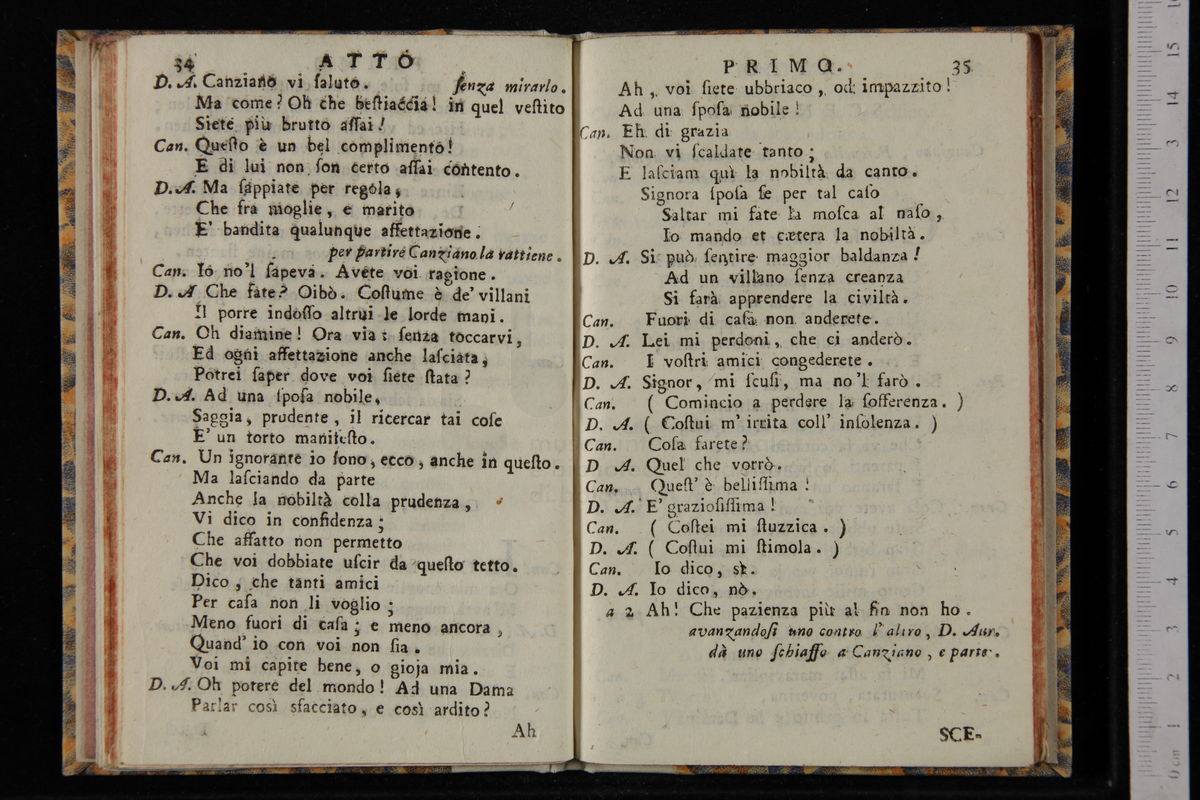 34 ATTO
D. A. Canziano vi ſaluto. ſenza mirarlo.
Ma come? Oh che beſtiaccia! in quel veſtito
Siete più brutto aſſai!
Can. Queſto è un bel complimento!
E di lui non ſon certo aſſai contento.
D. A. Ma ſappiate per regola,
Che fra moglie, e marito
E' bandita qualunque affettazione.
per partire Canziano la rattiene.
Can. Io no'l ſapeva. Avete voi ragione.
D. A Che fate? Oibò. Coſtume è de' villani
Il porre indoſſo altrui le lorde mani.
Can. Oh diamine! Ora via: ſenza toccarvi,
Ed ogni affettazione anche laſciata,
Potrei ſaper dove voi ſiete ſtata?
D. A. Ad una ſpoſa nobile,
Saggia, prudente, il ricercar tai coſe
E' un torto manifeſto.
Can. Un ignorante io ſono, ecco, anche in queſto.
Ma laſciando da parte
Anche la nobiltà colla prudenza,
Vi dico in confidenza;
Che affatto non permetto
Che voi dobbiate uſcir da queſto tetto.
Dico, che tanti amici
Per caſa non li voglio;
Meno fuori di caſa; e meno ancora,
Quand' io con voi non ſia.
Voi mi capite bene, o gioja mia.
D. A. Oh potere del mondo! Ad una Dama
Parlar così sfacciato, e così ardito?
Ah
PRIMO. 35
Ah, voi ſiete ubbriaco, od impazzito!
Ad una ſpoſa nobile!
Can. Eh di grazia
Non vi ſcaldate tanto;
E laſciam quì la nobiltà da canto.
Signora ſpoſa ſe per tal caſo
Saltar mi fate la moſca al naſo,
Io mando et cætera la nobiltà.
D. A. Si può ſentire maggior baldanza!
Ad un villano ſenza creanza
Si farà apprendere la civiltà.
Can. Fuori di caſa non anderete.
D. A. Lei mi perdoni, che ci anderò.
Can. I voſtri amici congederete.
D. A. Signor, mi ſcuſi, ma no'l farò.
Can. ( Comincio a perdere la ſofferenza. )
D. A. ( Coſtui m' irrita coll' inſolenza. )
Can. Coſa farete?
D A. Quel che vorrò.
Can. Queſt' è belliſſima!
D. A. E' grazioſiſſima!
Can. ( Coſtei mi ſtuzzica. )
D. A. ( Coſtui mi ſtimola. )
Can. Io dico, sì.
D. A. Io dico, nò.
a 2 Ah! Che pazienza più al fin non ho.
avanzandoſi uno contro l'altro, D. Aur.
dà uno ſchiaffo a Canziano, e parte.
SCE-